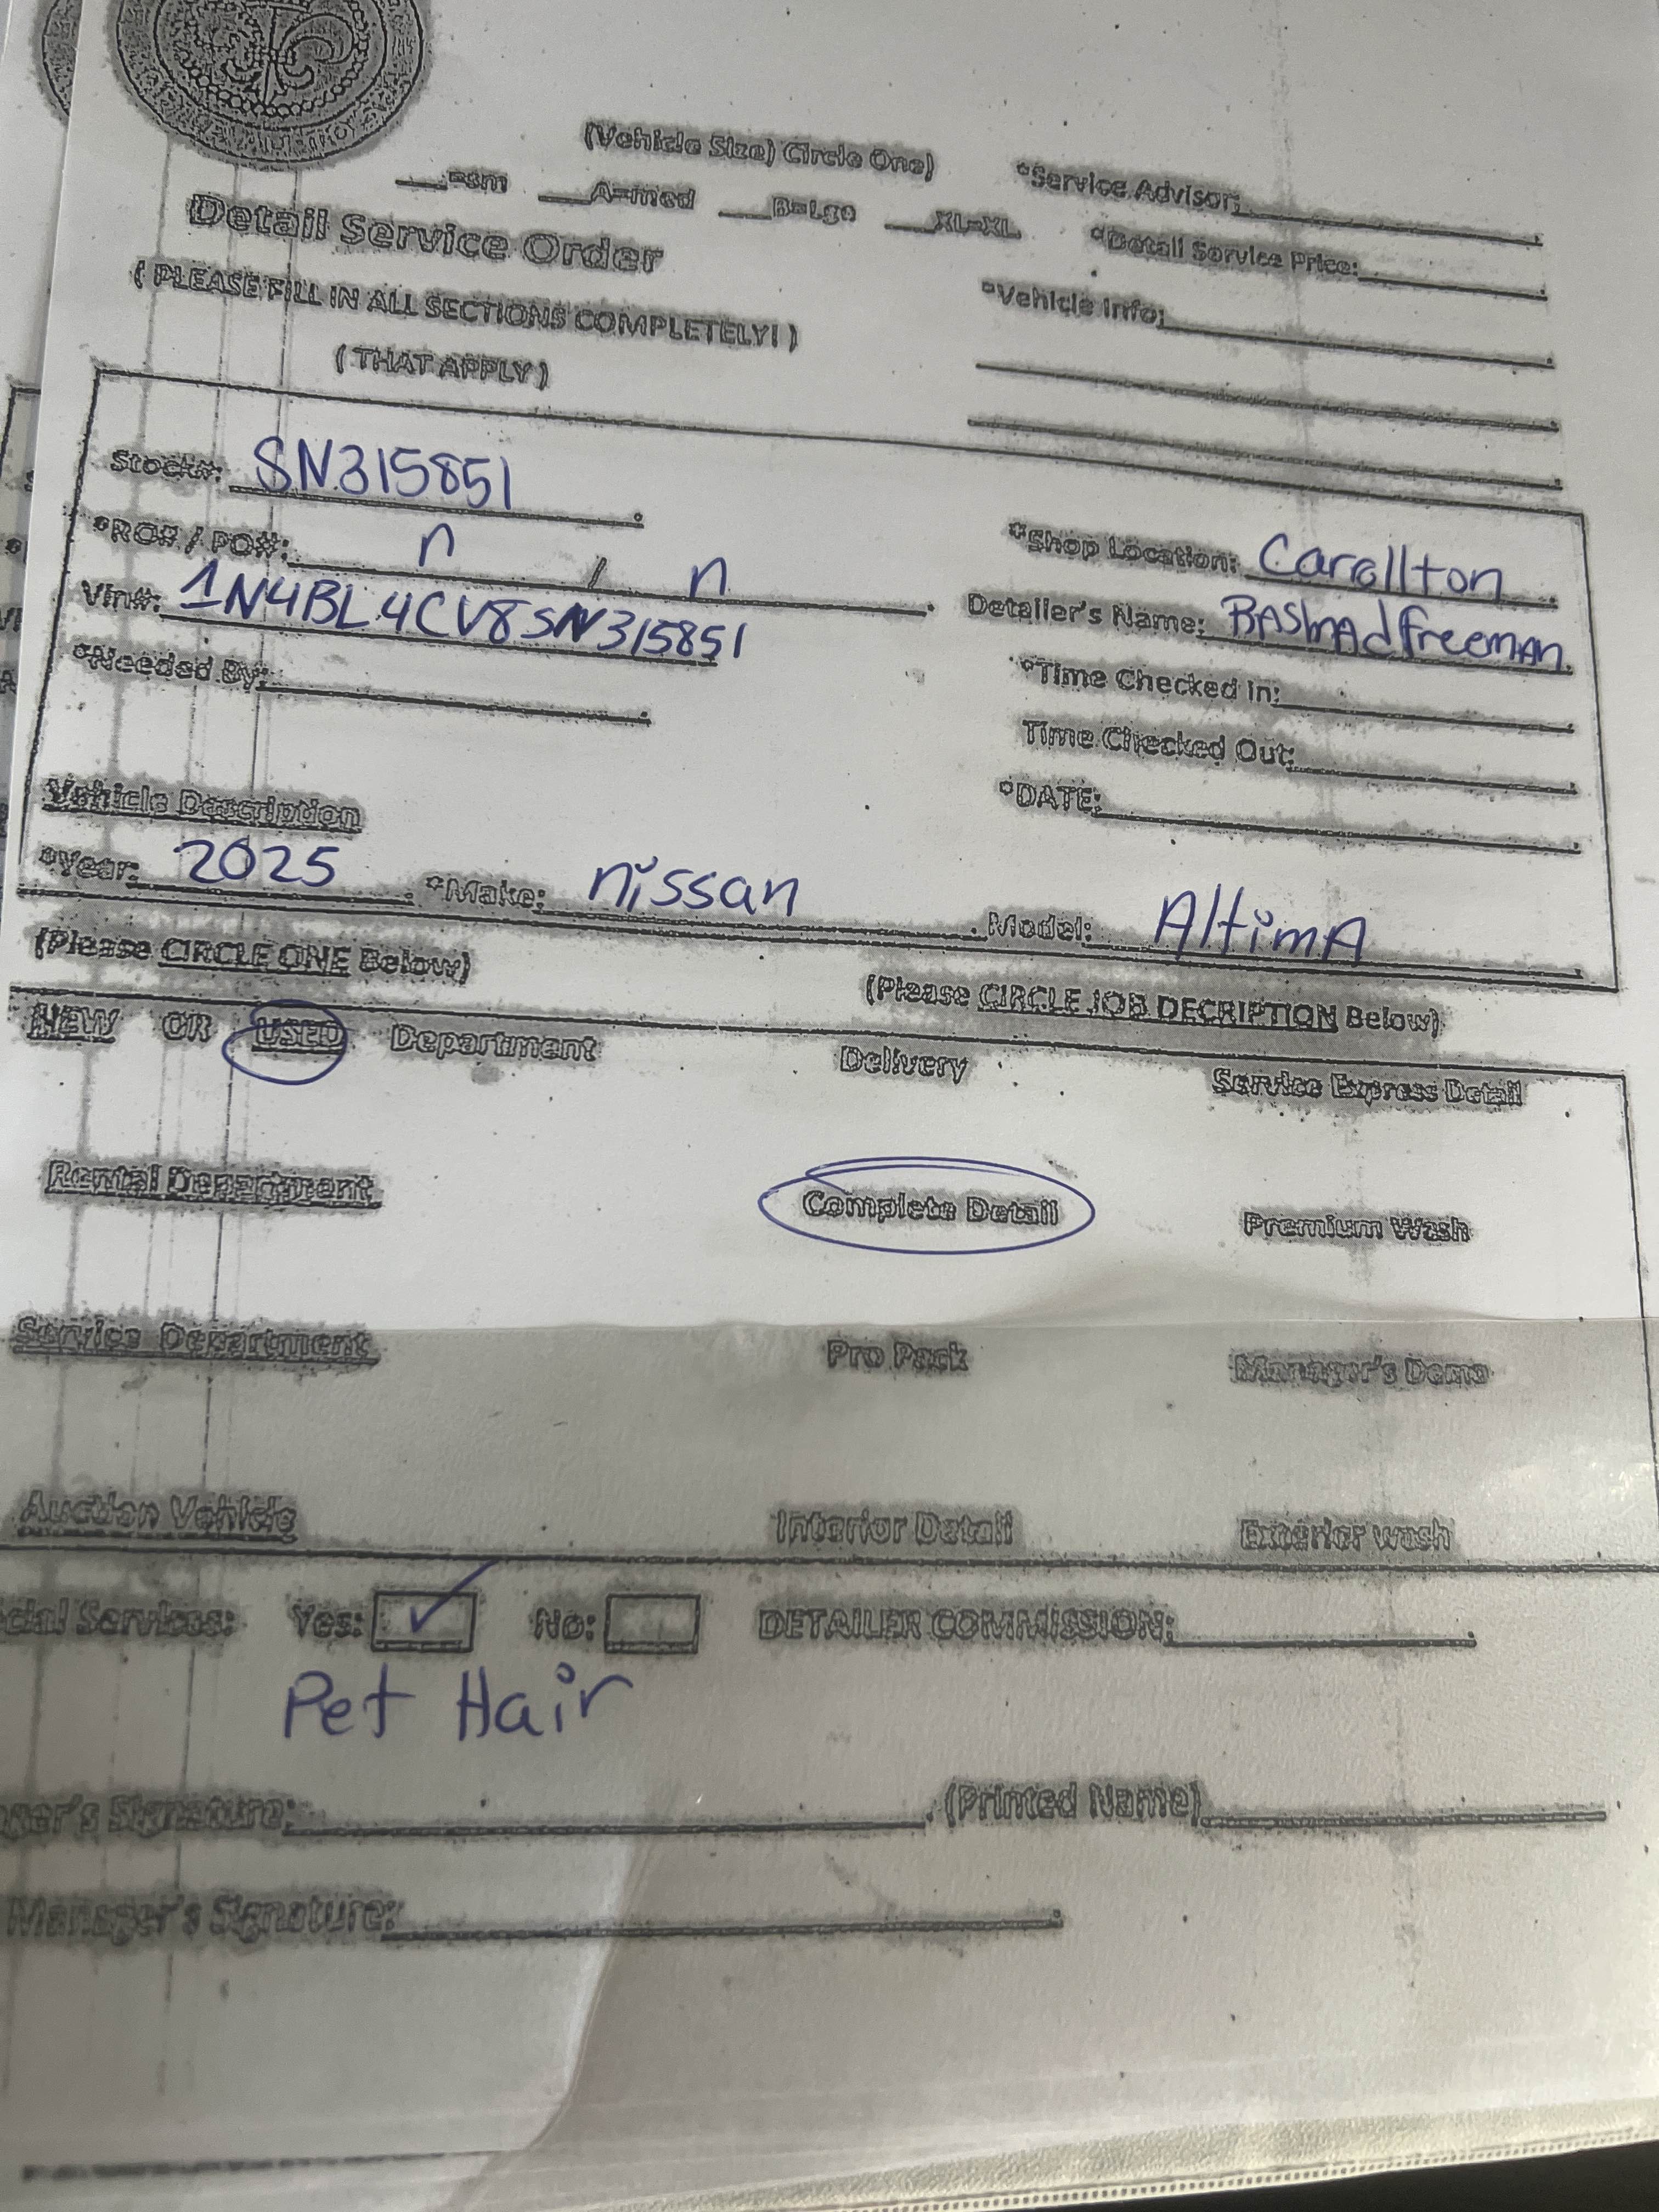 (Vehicle Size) Circle One)
__=sm __A=med __B=Lge __XL=XL
Detail Service Order
( PLEASE FILL IN ALL SECTIONS COMPLETELY! )
( THAT APPLY )
*Service Advisor:
*Detail Service Price:
*Vehicle Info:
Stock#: SN315851
*RO# / PO#: n / n
Vin#: 1N4BL4CV8SN315851
*Needed By:
*Shop Location: Carollton
Detailer's Name: RAShAd freemAn
*Time Checked In:
Time Checked Out:
*DATE:
Vehicle Description
*Year: 2025 *Make: nissan Model: AltimA
(Please CIRCLE ONE Below)
(Please CIRCLE JOB DECRIPTION Below)
NEW OR USED Department
Delivery
Service Express Detail
Rental Department
Complete Detail
Premium Wash
Service Department
Pro Pack
Manager's Demo
Auction Vehicle
Interior Detail
Exterior wash
cial Services: Yes: No: DETAILER COMMISSION:
Pet Hair
ager's Signature: (Printed Name)
Manager's Signature: